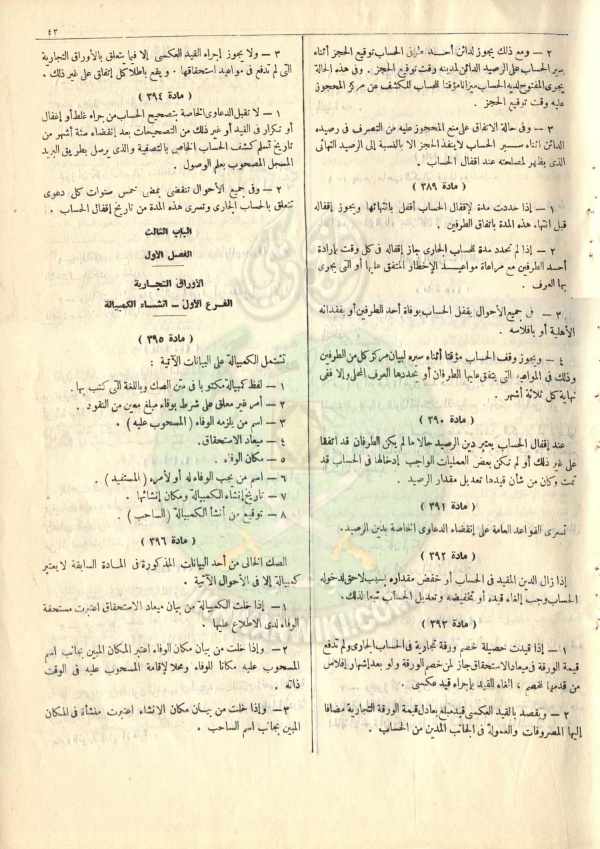 ٤٣
٢ – ومع ذلك يجوز لدائن أحد طرفى الحساب توقيع الحجز أثناء
سير الحساب على الرصيد الدائن لمدينه وقت توقيع الحجز . وفى هذه الحالة
يجرى المفتوح لديه الحساب ميزانا مؤقتا للحساب للكشف عن مركز المحجوز
عليه وقت توقيع الحجز .
٣ – وفى حالة الاتفاق على منع المحجوز عليه من التصرف فى رصيده
الدائن أثناء سير الحساب لا ينفذ الحجز الا بالنسبة إلى الرصيد النهائى
الذى يظهر لمصلحته عند اقفال الحساب .
( مادة ٣٨٩ )
١ – إذا حددت مدة لإقفال الحساب أقفل بانتهائها ويجوز إقفاله
قبل انتهاء هذه المدة باتفاق الطرفين .
٢ – إذا لم تحدد مدة للحساب الجارى جاز إقفاله فى كل وقت بإرادة
أحد الطرفين مع مراعاة مواعيد الإخطار المتفق عليها أو التى يجرى
بها العرف .
٣ – فى جميع الأحوال يقفل الحساب بوفاة أحد الطرفين أو بفقدانه
الأهلية أو بافلاسه .
٤ – ويجوز وقف الحساب مؤقتا أثناء سيره لبيان مركز كل من الطرفين
وذلك فى المواعيد التى يتفق عليها الطرفان أو يحددها العرف المحلى وإلا ففى
نهاية كل ثلاثة أشهر .
( مادة ٣٩٠ )
عند إقفال الحساب يعتبر دين الرصيد حالا ما لم يكن الطرفان قد اتفقا
على غير ذلك أو لم تكن بعض العمليات الواجب إدخالها فى الحساب قد
تمت وكان من شأن قيدها تعديل مقدار الرصيد .
( مادة ٣٩١ )
تسرى القواعد العامة على إنقضاء الدعاوى الخاصة بدين الرصيد.
( مادة ٣٩٢ )
إذا زال الدين المقيد فى الحساب أو خفض مقداره بسبب لاحق لدخوله
الحساب وجب إلغاء قيده أو تخفيضه وتعديل الحساب تبعا لذلك.
( مادة ٣٩٣ )
١ – إذا قيدت حصيلة خصم ورقة تجارية فى الحساب الجارى ولم تدفع
قيمة الورقة فى ميعاد الاستحقاق جاز لمن خصم الورقة ولو بعد إشهار إفلاس
من قدمها للخصم ، الغاء القيد بإجراء قيد عكسى .
٢ – ويقصد بالقيد العكسى قيد مبلغ يعادل قيمة الورقة التجارية مضافا
إليها المصروفات والعمولة فى الجانب المدين من الحساب .
٣ – ولا يجوز إجراء القيد العكسى إلا فيما يتعلق بالأوراق التجارية
التى لم تدفع فى مواعيد استحقاقها . ويقع باطلا كل إتفاق على غير ذلك .
( مادة ٣٩٤ )
١ – لا تقبل الدعاوى الخاصة بتصحيح الحساب من جراء غلط أو إغفال
أو تكرار فى القيد أو غير ذلك من التصحيحات بعد إنقضاء ستة أشهر من
تاريخ تسلم كشف الحساب الخاص بالتصفية والذى يرسل بطريق البريد
المسجل المصحوب بعلم الوصول .
٢ – وفى جميع الأحوال تنقضى بمضى خمس سنوات كل دعوى
تتعلق بالحساب الجارى وتسرى هذه المدة من تاريخ إقفال الحساب .
الباب الثالث
الفصل الأول
الأوراق التجارية
الفرع الأول – انشاء الكمبيالة
( مادة ٣٩٥ )
تشتمل الكمبيالة على البيانات الآتية :
١ – لفظ كمبيالة مكتوبا فى متن الصك وباللغة التى كتب بها .
٢ – أمر غير معلق على شرط بوفاء مبلغ معين من النقود .
٣ – اسم من يلزمه الوفاء ( المسحوب عليه ) .
٤ – ميعاد الاستحقاق .
٥ – مكان الوفاء .
٦ – اسم من يجب الوفاء له أو لأمره ( المستفيد ) .
٧ – تاريخ إنشاء الكمبيالة ومكان إنشائها .
٨ – توقيع من أنشأ الكمبيالة ( الساحب ) .
( مادة ٣٩٦ )
الصك الخالى من أحد البيانات المذكورة فى المادة السابقة لا يعتبر
كمبيالة إلا فى الأحوال الآتية .
١ – إذا خلت الكمبيالة من بيان ميعاد الاستحقاق اعتبرت مستحقة
الوفاء لدى الاطلاع عليها .
٢ – وإذا خلت من بيان مكان الوفاء اعتبر المكان المبين بجانب اسم
المسحوب عليه مكانا للوفاء ومحلا لإقامة المسحوب عليه فى الوقت
ذاته .
٣ – وإذا خلت من بيان مكان الانشاء اعتبرت منشأة فى المكان
المبين بجانب اسم الساحب .